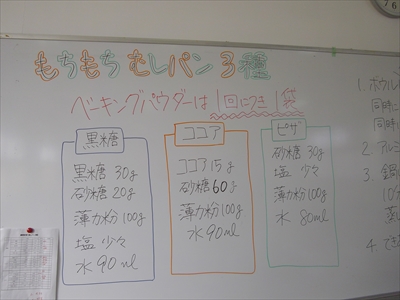 もちもち むしパン 3種
ベーキングパウダーは 1回につき 1袋
黒糖
黒糖 30g
砂糖 20g
薄力粉 100g
塩 少々
水 90ml
ココア
ココア 15g
砂糖 60g
薄力粉 100g
水 90ml
ピザ
砂糖 30g
塩 少々
薄力粉 100g
水 80ml
1. ボウル
同時に
同時
2. アルミ
3. 鍋
10分
蒸
4. でき